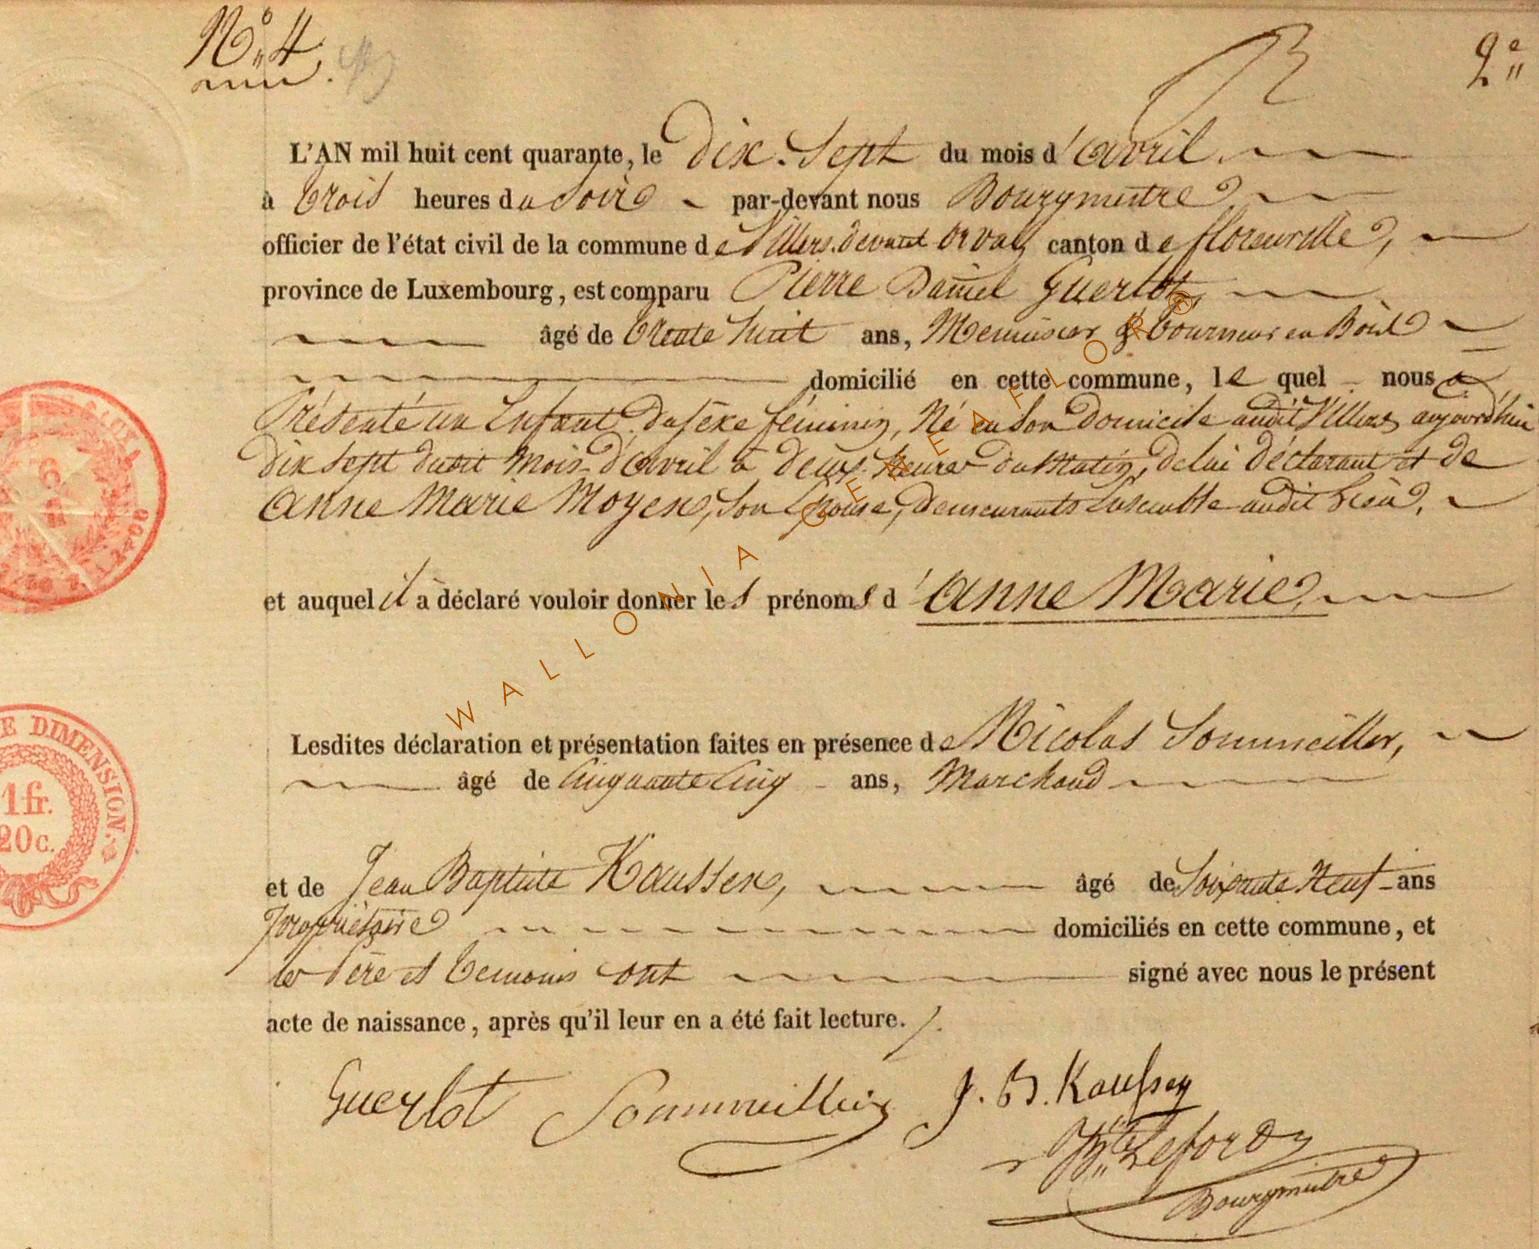 N° 4 2e
L'AN mil huit cent quarante, le Dix-Sept du mois d'avril
à trois heures du soir par-devant nous Bourgmestre
officier de l'état civil de la commune de Villers devant Orval, canton de florenville,
province de Luxembourg, est comparu Pierre Daniel Guerlot,
âgé de trente huit ans, Menuisier & tourneur en Bois
domicilié en cette commune, le quel nous a
Présenté un Enfant du sexe féminin, Né en son Domicile audit Villers, aujourd'hui
dix sept dudit mois d'avril à deux heures du Matin, de lui déclarant et de
Anne Marie Moyen, son Epouse, demeurants Ensemble audit Lieu,
et auquel il a déclaré vouloir donner les prénoms d'Anne Marie,
Lesdites déclaration et présentation faites en présence de Nicolas Sommeiller,
âgé de Cinquante Cinq ans, Marchand
et de Jean Baptiste Kaussen, âgé de Soixante Neuf ans
propriétaire domiciliés en cette commune, et
les Père et temoins ont signé avec nous le présent
acte de naissance, après qu'il leur en a été fait lecture.
Guerlot Sommeillier J. B. Kaussen
Lefordy
Bourgmestre
E DIMENSION.
1 fr.
20 c.
WALLONIA GENEAFLORE ®